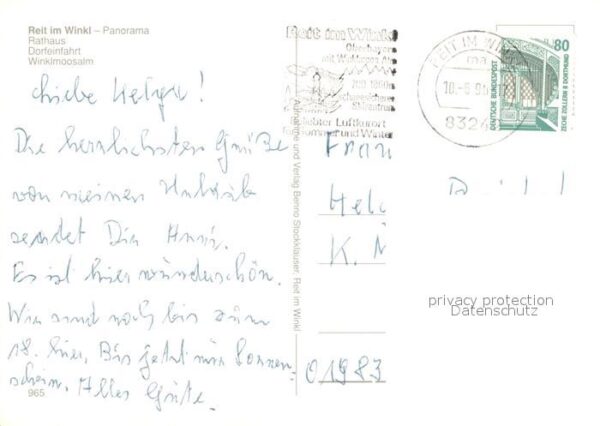 Reit im Winkl – Panorama
Rathaus
Dorfeinfahrt
Winklmoosalm
Liebe Helga!
Die herzlichsten Grüße
von meinen Urlaub
sendet Dir Anni.
Es ist hier wunderschön.
Wir sind noch bis zum
18. hier, Bis jetzt nur Sonnen-
schein. Alles Gute.
965
Aufnahme und Verlag Benno Stockklauser, Reit im Winkl
Reit im Winkl
Oberbayern
mit Winklmoos Alm
Skizentrum
beliebter Luftkurort
für Sommer und Winter
REIT IM WINKL
10.-6.90
8324
80
DEUTSCHE BUNDESPOST
ZECHE ZOLLERN II DORTMUND
Frau
Hel
K.
01983
privacy protection
Datenschutz